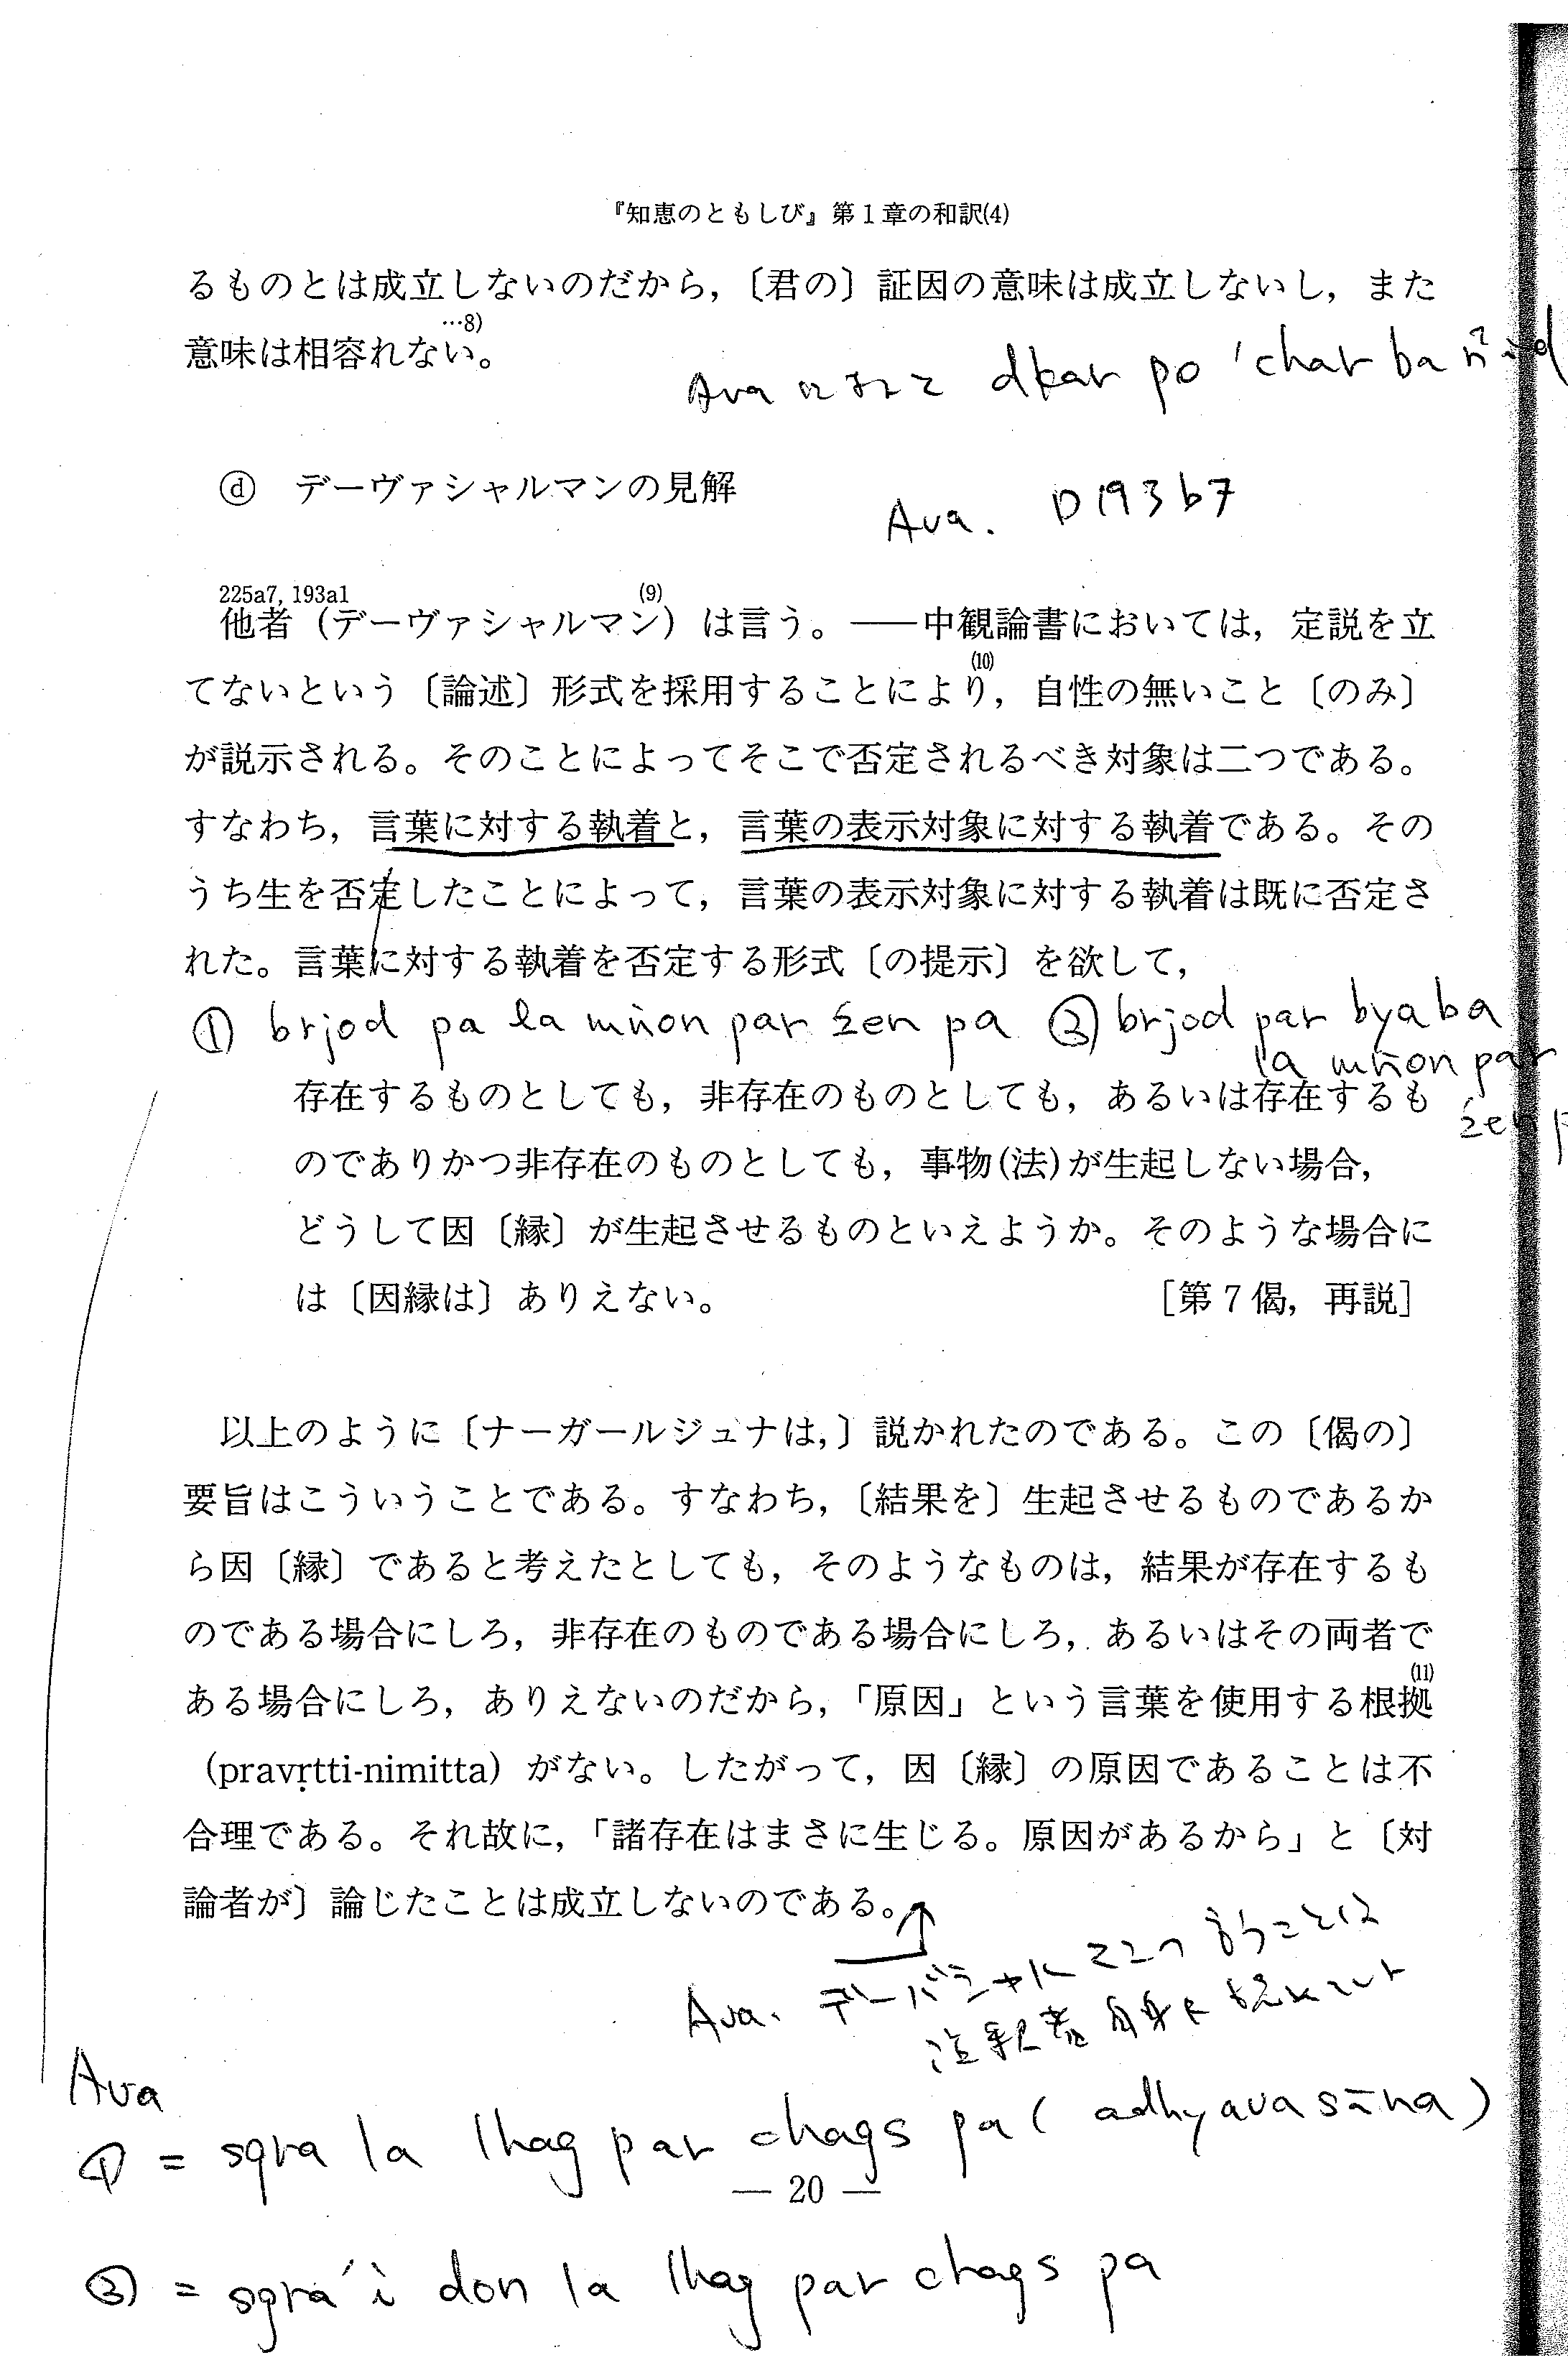 『知恵のともしび』第1章の和訳(4)
るものとは成立しないのだから,〔君の〕証因の意味は成立しないし,また
…8)
意味は相容れない。
Ava dkar po 'char ba ñid
ⓓ デーヴァシャルマンの見解
Ava. D193b7
225a7, 193a1 (9)
他者(デーヴァシャルマン)は言う。――中観論書においては,定説を立
(10)
てないという〔論述〕形式を採用することにより,自性の無いこと〔のみ〕
が説示される。そのことによってそこで否定されるべき対象は二つである。
すなわち,言葉に対する執着と,言葉の表示対象に対する執着である。その
うち生を否定したことによって,言葉の表示対象に対する執着は既に否定さ
れた。言葉に対する執着を否定する形式〔の提示〕を欲して,
① brjod pa la mṅon par źen pa ② brjod par bya ba
la mṅon par
źen p
存在するものとしても,非存在のものとしても,あるいは存在するも
のでありかつ非存在のものとしても,事物(法)が生起しない場合,
どうして因〔縁〕が生起させるものといえようか。そのような場合に
は〔因縁は〕ありえない。 [第7偈,再説]
以上のように〔ナーガールジュナは,〕説かれたのである。この〔偈の〕
要旨はこういうことである。すなわち,〔結果を〕生起させるものであるか
ら因〔縁〕であると考えたとしても,そのようなものは,結果が存在するも
のである場合にしろ,非存在のものである場合にしろ,あるいはその両者で
(11)
ある場合にしろ,ありえないのだから,「原因」という言葉を使用する根拠
(pravṛtti-nimitta)がない。したがって,因〔縁〕の原因であることは不
合理である。それ故に,「諸存在はまさに生じる。原因があるから」と〔対
論者が〕論じたことは成立しないのである。
Ava. デーバシャルマンの言うことは
注釈者自身に
Ava
① = sgra la lhag par chags pa (adhyavasāna)
— 20 —
② = sgra'i don la lhag par chags pa